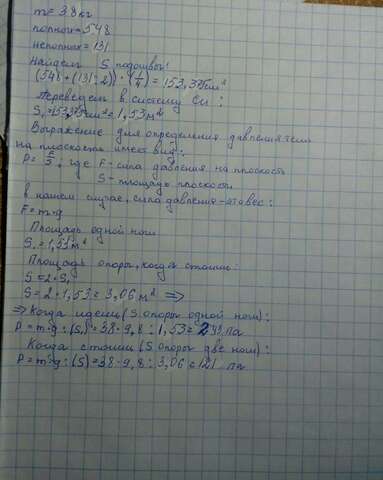 m = 38 кг
полных = 548
неполных = 131
найдем S подошвы:
(548 + (131:2)) · (1/4) = 153,375 см²
Переведем в систему Си:
S₁ = 153,375 см² = 1,53 м²
Выражение для определения давления тела
на плоскость имеет вид:
P = F/S; где F - сила давления на плоскость
S - площадь плоскости
в нашем случае, сила давления - это вес:
F = m·g
Площадь одной ноги
S₁ = 1,53 м²
Площадь опоры, когда стоим:
S = 2·S₁
S = 2 · 1,53 = 3,06 м² ⇒
⇒ Когда идем (S опоры одной ноги):
P = m·g : (S₁) = 38 · 9,8 : 1,53 = 243 Па
Когда стоим (S опоры две ноги):
P = m·g : (S) = 38 · 9,8 : 3,06 = 121 Па